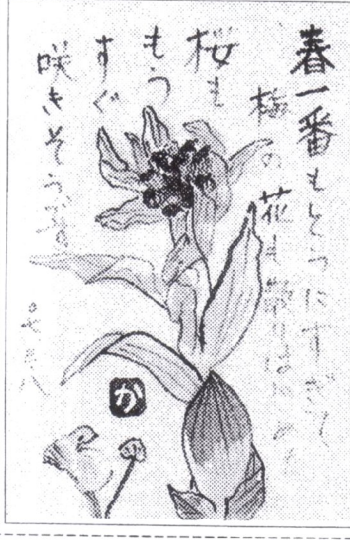 春一番もとうにすぎて
梅の花も散りはじめ
桜も
もう
すぐ
咲きそうです。
か